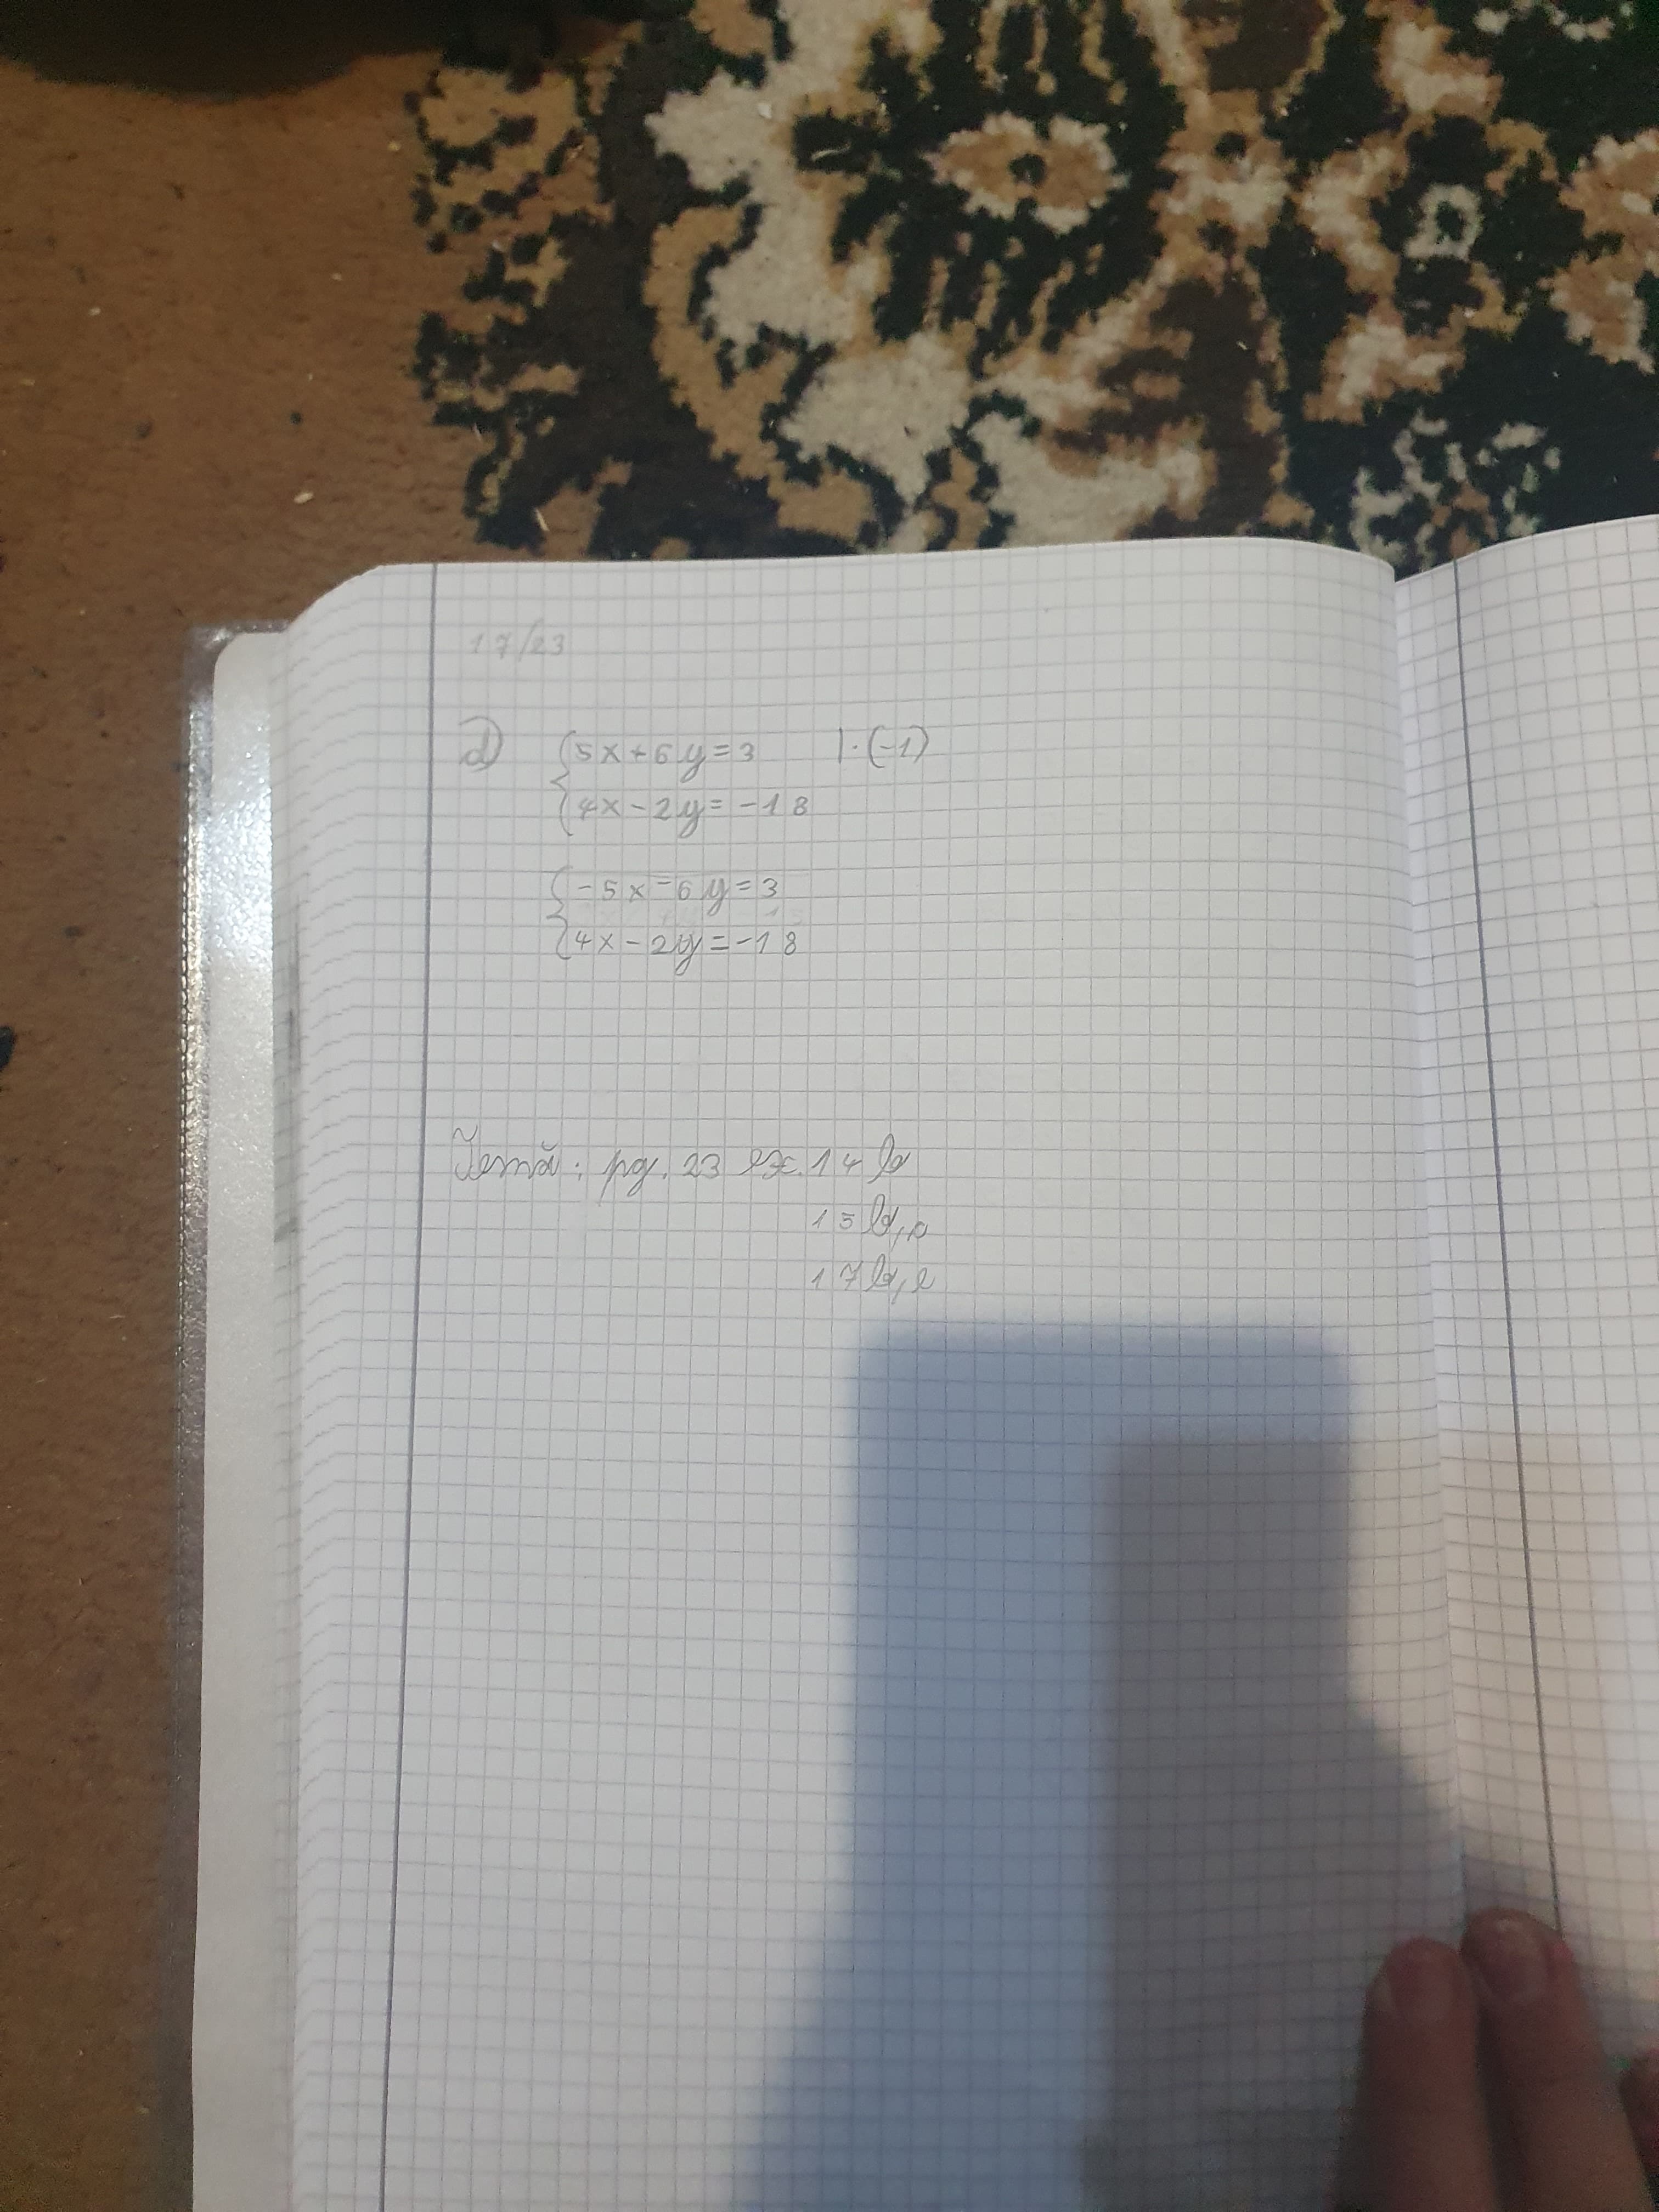 17/23
d) {5x+6y=3 |·(-1)
{4x-2y=-18
{-5x-6y=3
{4x-2y=-18
Temă: pg. 23 ex. 14 b
15 b, c
17 b, e